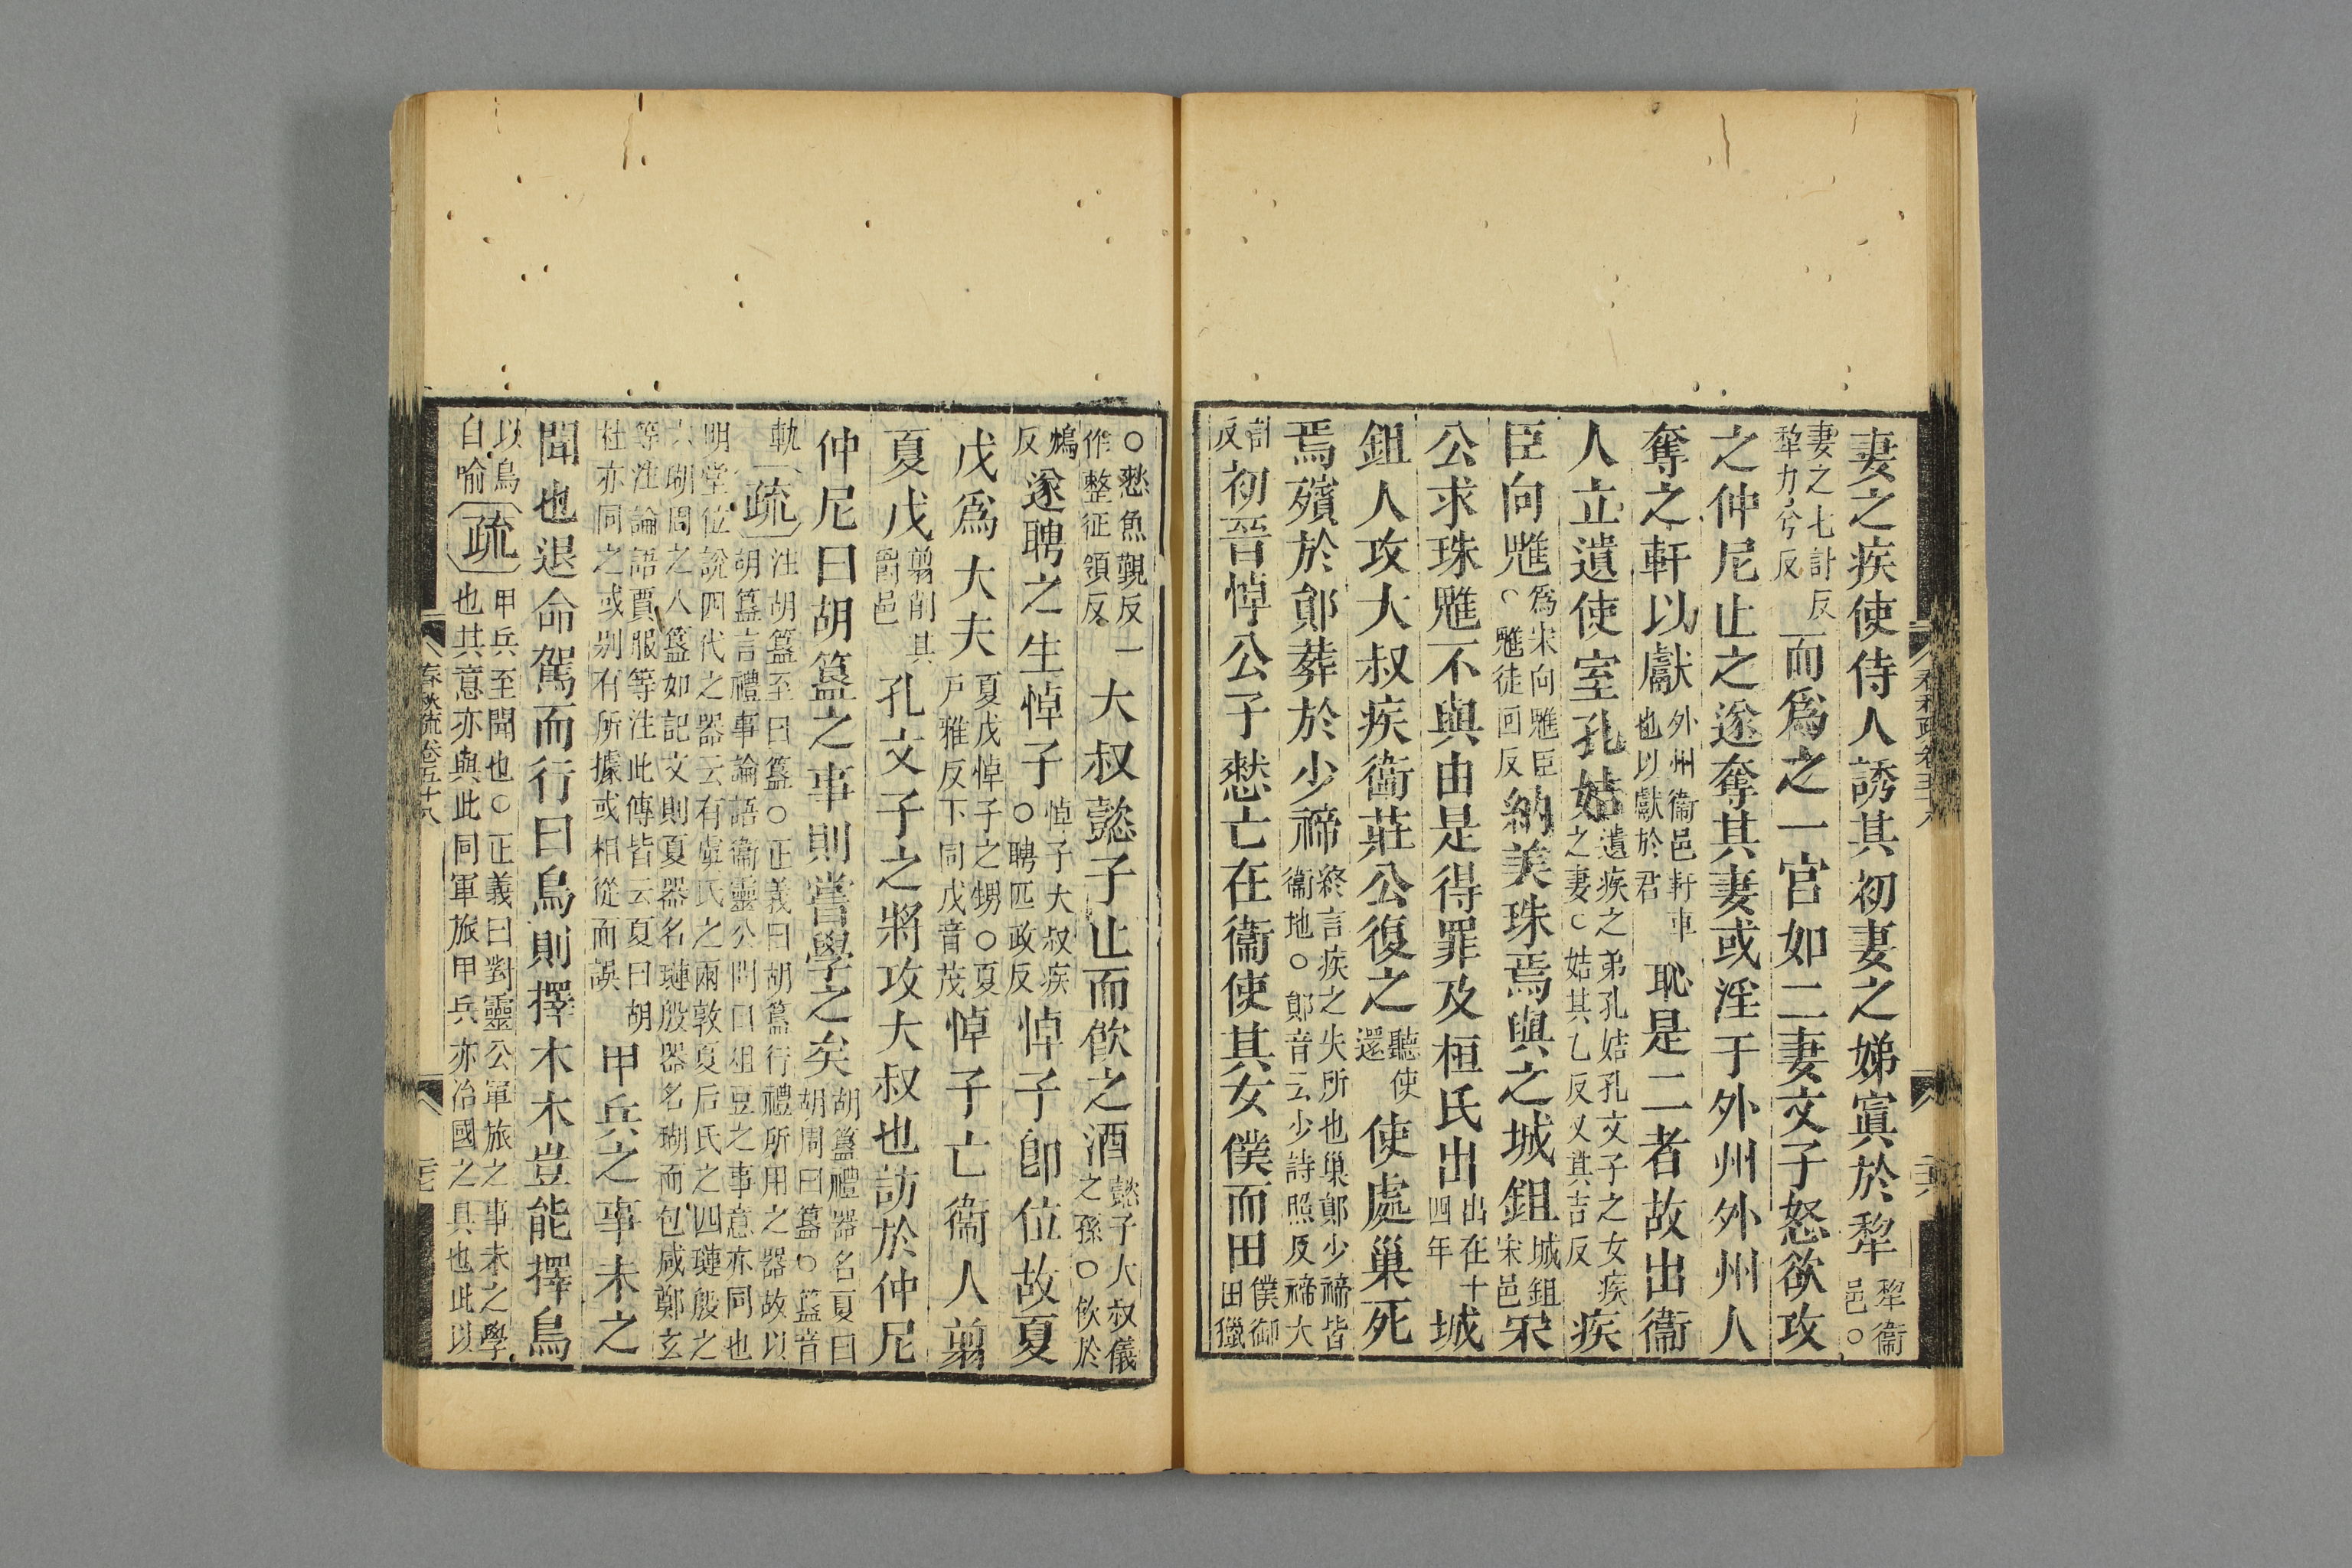 妻之疾使侍人誘其初妻之娣寘於犂犂衞邑○
妻之七計反犂力兮反而爲之一宮如二妻文子怒欲攻
之仲尼止之遂奪其妻或淫于外州外州人
奪之軒以獻外州衞邑軒車也以獻於君恥是二者故出衞
人立遺使室孔姞遺疾之弟孔姞孔文子之女疾之妻○姞其乙反又其吉反疾
臣向魋爲宋向魋臣○魋徒回反納美珠焉與之城鉏城鉏宋邑宋
公求珠魋不與由是得罪及桓氏出出在十四年城
鉏人攻大叔疾衞莊公復之聽使還使處巢死
焉殯於鄖葬於少禘終言疾之失所也巢鄖少禘皆衞地○鄖音云少詩照反禘大
計反初晉悼公子憖亡在衞使其女僕而田僕御田獵
○憖魚覲反一作整征領反大叔懿子止而飲之酒懿子大叔儀之孫○飲於
鴆反遂聘之生悼子悼子大叔疾○聘匹政反悼子卽位故夏
戊爲大夫夏戊悼子之甥○夏戶雅反下同戊音茂悼子亡衞人翦
夏戊翦削其爵邑孔文子之將攻大叔也訪於仲尼
仲尼曰胡簋之事則嘗學之矣胡簋禮器名夏曰胡周曰簋○簋音
軌疏注胡簋至曰簋○正義曰胡簋行禮所用之器故以胡簋言禮事論語衞靈公問曰俎豆之事意亦同也
明堂位說四代之器云有虞氏之兩敦夏后氏之四璉殷之六瑚周之八簋如記文則夏器名璉殷器名瑚而包咸鄭玄
等注論語賈服等注此傳皆云夏曰胡杜亦同之或別有所據或相從而誤甲兵之事未之
聞也退命駕而行曰鳥則擇木木豈能擇鳥
以鳥自喻疏甲兵至聞也○正義曰對靈公軍旅之事未之學也其意亦與此同軍旅甲兵亦治國之具也此以
春秋疏卷五十八